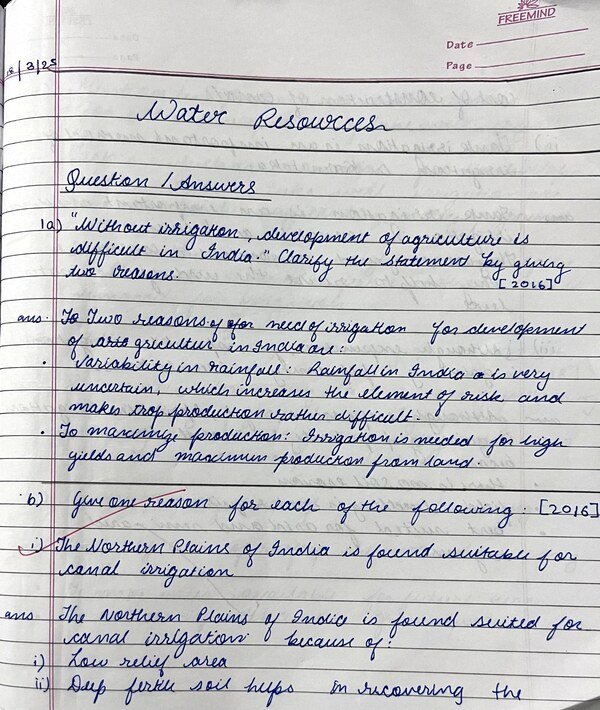 FREEMIND
Date
Page
/3/25
Water Resources
Question / Answers
1a) "Without irrigation, development of agriculture is
difficult in India." Clarify the statement by giving
two reasons. [2016]
ans. Two reasons of for need of irrigation for development
of gricultur in India are:
• Variability in rainfall: Rainfall in India is very
uncertain, which increases the element of risk and
makes crop production rather difficult.
• To maximize production: Irrigation is needed for high
yields and maximum production from land.
b) Give one reason for each of the following: [2016]
i) The Northern Plains of India is found suitable for
canal irrigation
ans The Northern Plains of India is found suited for
canal irrigation because of:
i) Low relief area
ii) Deep fertile soil helps in recovering the